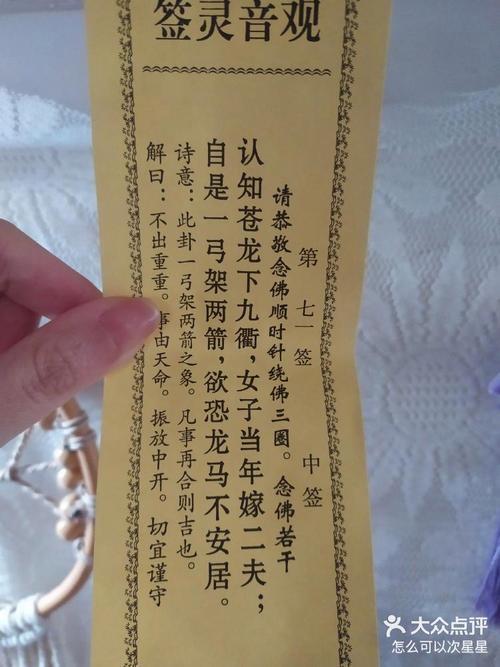 签灵音观
第七一签　中签
请恭敬念佛顺时针绕佛三圈。念佛若干
认知苍龙下九衢，女子当年嫁二夫；
自是一弓架两箭，欲恐龙马不安居。
诗意：此卦一弓架两箭之象。凡事再合则吉也。
解曰：不出重重。事由天命。振放中开。切宜谨守
大众点评
怎么可以次星星